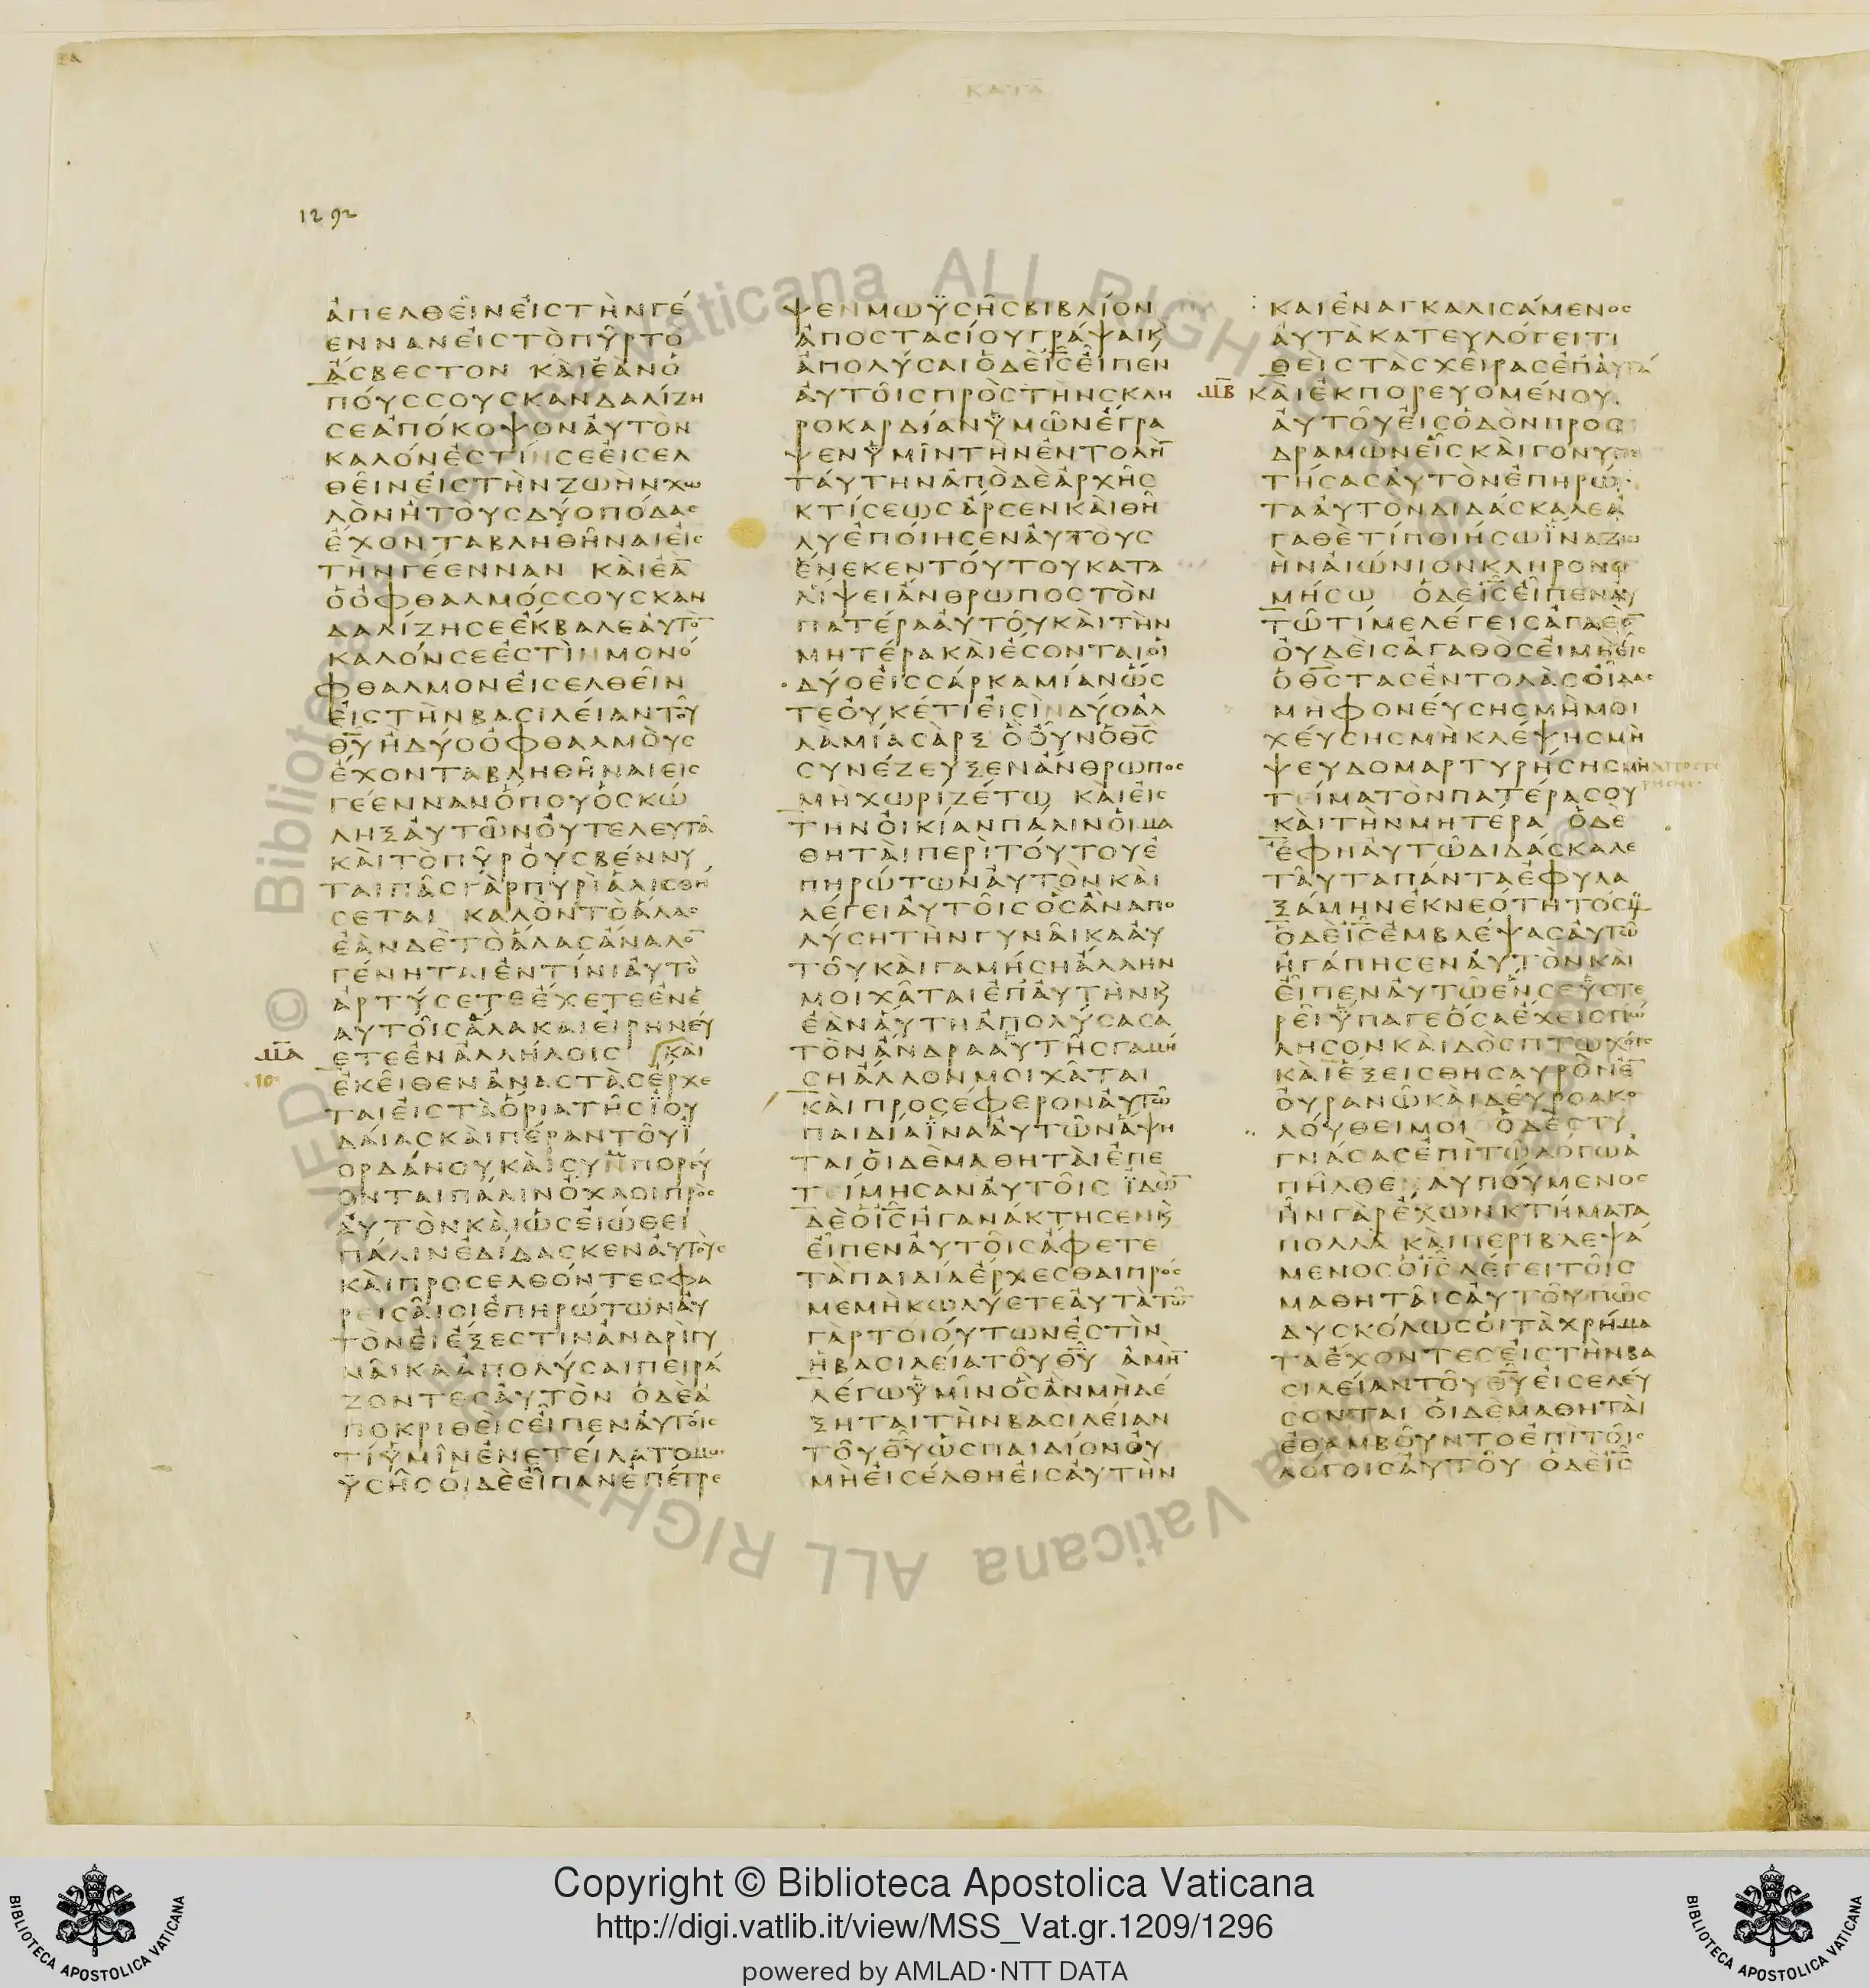 ΚΑΤΑ
1292
ἀπελθεῖνεἰςτὴνγέ
ενναneἰςτὸπῦρτὸ
ἄσβεστον καὶἐὰνὁ
πούςσουσκανδαλίζη
σεἀπόκοψοναὐτὸν
καλόνἐστίνσεεἰσελ
θεῖνεἰςτὴνζωὴνχω
λὸνἢτοὺςδύοπόδας
ἔχονταβληθῆναιεἰς
τὴνγέενναν καὶἐὰ̅
ὁὀφθαλμόςσουσκαν
δαλίζησεἔκβαλεαὐτὸ̅
καλόνσεἐστὶνμονό
φθαλμονεἰσελθεῖν
εἰςτὴνβασιλείαντοῦ
θ̅υ̅ἢδύοὀφθαλμοὺς
ἔχονταβληθῆναιεἰς
γέεννανὅπουὁσκώ
ληξαὐτῶνοὐτελευτᾶ
καὶτὸπῦροὐσβέννυ
ταιπᾶςγὰρπυρὶἁλισθή
σεται καλὸντὸἅλας
ἐὰνδὲτὸἅλαςἄναλο̅
γένηταιἐντίνιαὐτὸ
ἀρτύσετεἔχετεἐνἑ
αυτοῖςἅλακαὶεἰρηνεύ
μ̅α̅ ετεἐνἀλλήλοις καὶ
ἐκεῖθενἀναστὰςἔρχε
ταιεἰςτὰὅριατῆςϊου
δαίαςκαὶπέραντοῦϊ
ορδάνουκαὶσυνπορεύ
ονταιπάλινὄχλοιπρὸς
αὐτὸνκαὶὡςεἰώθει
πάλινἐδίδασκεναὐτοὺς
καὶπροσελθόντεςφα
ρεισαῖοιἐπηρώτωναὐ
τὸνεἰἔξεστινἀνδρὶγυ
ναῖκαἀπολῦσαιπειρά
ζοντεςαὐτόν ὁδὲἀ
ποκριθεὶςεἶπεναὐτοῖς
τίὑμῖνἐνετείλατομω
ϋσῆςοἱδὲεἶπανἐπέτρε
ψενμωϋσῆςβιβλίον
ἀποστασίουγράψαικ̀
ἀπολῦσαιὁδὲι̅ς̅εἶπεν
αὐτοῖςπρὸςτὴνσκλη
ροκαρδίανὑμῶνἔγρα
ψενὑμῖντὴνἐντολὴ̅
ταύτηνἀπὸδὲἀρχῆς
κτίσεωςἄρσενκαὶθῆ
λυἐποίησεναὐτοὺς
ἕνεκεντούτουκατα
λείψειἄνθρωποςτὸν
πατέρααὐτοῦκαὶτὴν
μητέρακαὶἔσονταιοἱ
δύοεἰςσάρκαμίανὥς
τεοὐκέτιεἰσὶνδύοἀλ
λὰμίασὰρξ ὃοὖνὁθ̅ς̅
συνέζευξενἄνθρωπος
μὴχωριζέτω καὶεἰς
τὴνοἰκίανπάλινοἱμα
θηταὶπερὶτούτουἐ
πηρώτωναὐτὸνκαὶ
λέγειαὐτοῖςὃςἂναπο
λύσητὴνγυναῖκααὐ
τοῦκαὶγαμήσηἄλλην
μοιχᾶταιἐπ'αὐτὴνκ̀
ἐὰναὐτὴἀπολύσασα
τὸνἄνδρααὐτῆςγαμή
σηἄλλονμοιχᾶται
καὶπροσέφεροναὐτῶ
παιδίαϊνααὐτῶνἅψη
ταιοἱδὲμαθηταὶἐπε
τείμησαναὐτοῖς ϊδὼ̅
δὲὁι̅ς̅ἠγανάκτησενκ̀
εἶπεναὐτοῖςἄφετε
τὰπαιδίαἔρχεσθαιπρός
μεμὴκωλύετεαὐτὰτῶ̅
γὰρτοιούτωνἐστὶν
ἡβασιλείατοῦθ̅υ̅ ἀμὴ̅
λέγωὑμῖνὃςἂνμὴδέ
ξηταιτὴνβασιλείαν
τοῦθ̅υ̅ὡςπαιδίονοὐ
μὴεἰσέλθηεἰςαὐτὴν
καὶἐναγκαλισάμενος
αὐτὰκατευλόγειτι
θεὶςτὰςχεῖραςἐπ'αὐτά
μ̅β̅ καὶἐκπορευομένου
αὐτοῦεἰςὁδὸνπροσ
δραμὼνεἷςκαὶγονυπε
τήσαςαὐτὸνἐπηρώ
τααὐτὸνδιδάσκαλεἀ
γαθὲτίποιήσωϊναζω
ὴναἰώνιονκληρονο
μήσω ὁδὲι̅ς̅εἶπεναὐ
τῶτίμελέγειςἀγαθὸ̅
οὐδεὶςἀγαθὸςεἰμὴεἷς
ὁθ̅ς̅τὰςἐντολὰςοἶδας
μὴφονεύσηςμὴμοι
χεύσηςμὴκλέψηςμὴ
ψευδομαρτυρήσηςμὴἀποστε
ρήσης
τείματὸνπατέρασου
καὶτὴνμητέρα ὁδὲ
ἔφηαὐτῶδιδάσκαλε
ταῦταπάνταἐφυλα
ξάμηνἐκνεότητόςμου
ὁδὲι̅ς̅ἐμβλέψαςαὐτῶ
ἠγάπησεναὐτὸνκαὶ
εἶπεναὐτῶἕνσεὑστε
ρεῖὕπαγεὅσαἔχειςπώ
λησονκαὶδὸςπτωχοῖς
καὶἕξειςθησαυρὸνἐ̅
οὐρανῶκαὶδεῦροακο
λούθειμοι ὁδὲστυ
γνάσαςἐπὶτῶλόγωἀ
πῆλθενλυπούμενος
ἦνγὰρἔχωνκτήματα
πολλὰ καὶπεριβλεψά
μενοςὁι̅ς̅λέγειτοῖς
μαθηταῖςαὐτοῦπῶς
δυσκόλωςοἱτὰχρήμα
ταἔχοντεςεἰςτὴνβα
σιλείαντοῦθ̅υ̅εἰσελεύ
σονται οἱδὲμαθηταὶ
ἐθαμβοῦντοἐπὶτοῖς
λόγοιςαὐτοῦ ὁδὲι̅ς̅
Copyright © Biblioteca Apostolica Vaticana
http://digi.vatlib.it/view/MSS_Vat.gr.1209/1296
powered by AMLAD·NTT DATA
BIBLIOTECA APOSTOLICA VATICANA
BIBLIOTECA APOSTOLICA VATICANA